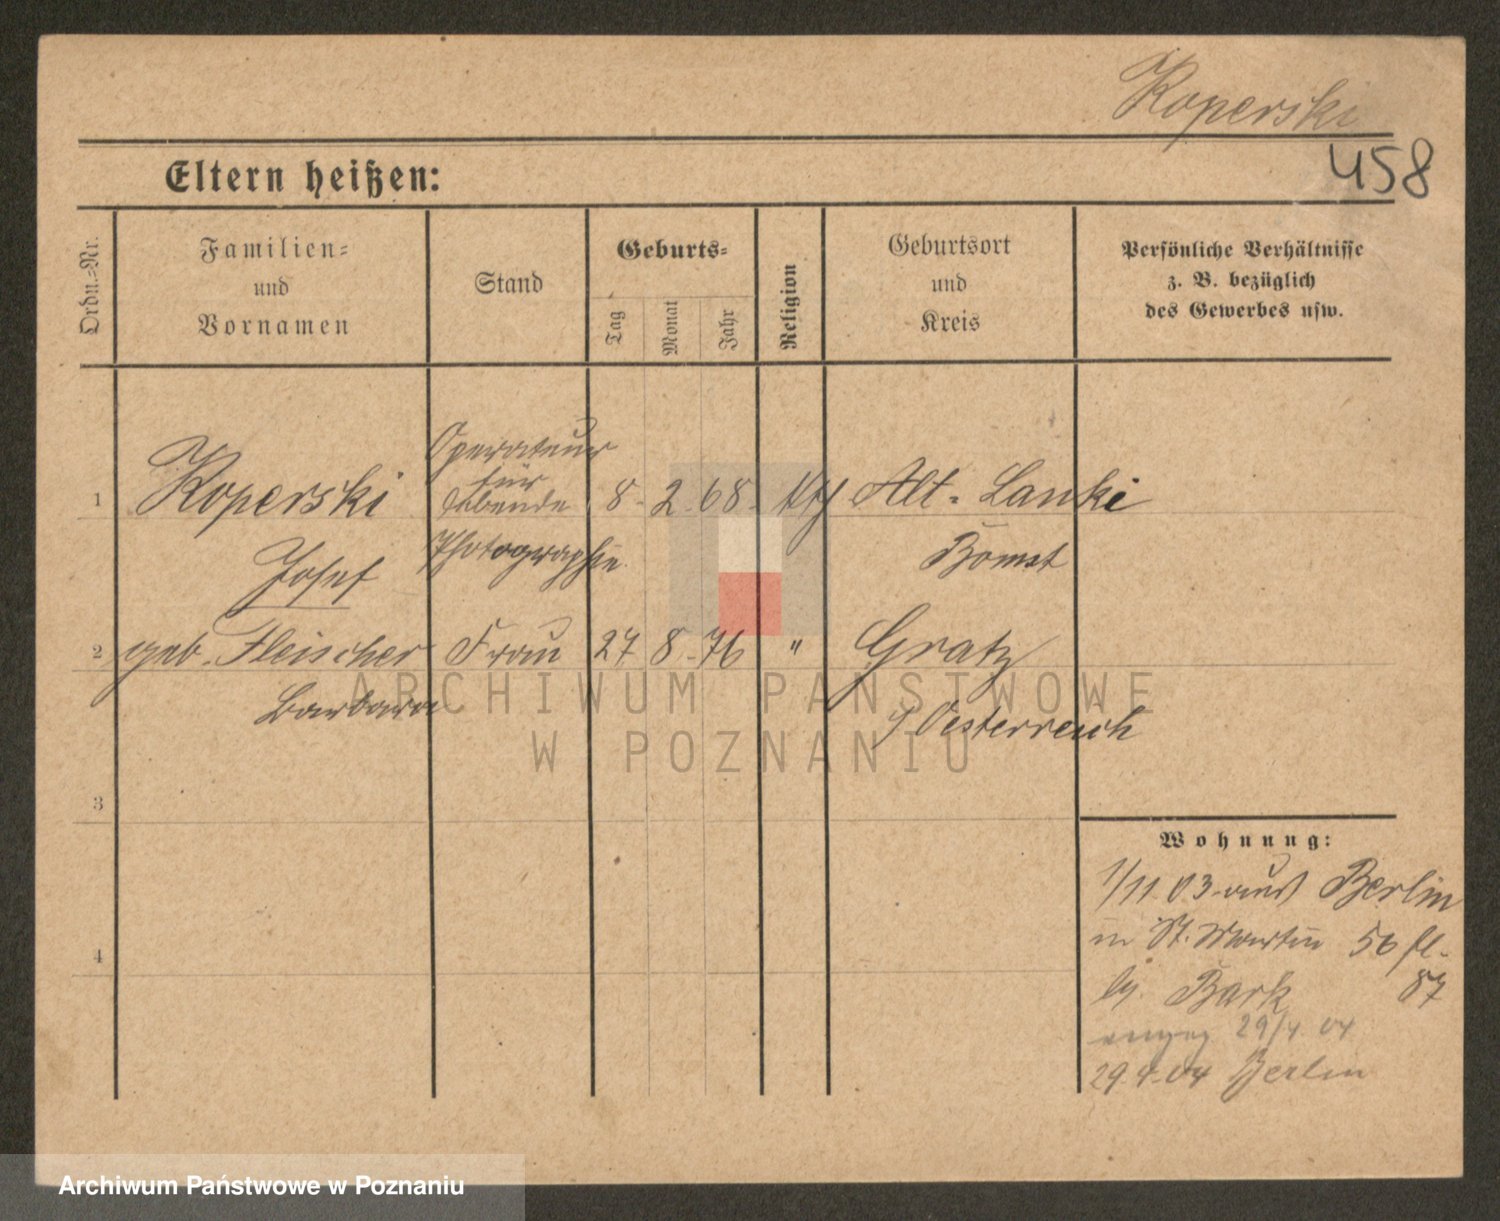 Koperski
458
Eltern heißen:
Ordn.=Nr.
Familien=
und
Vornamen
Stand
Geburts=
Tag
Monat
Jahr
Religion
Geburtsort
und
Kreis
Persönliche Verhältnisse
z. B. bezüglich
des Gewerbes usw.
1 Koperski Operateur 8. 2. 68. kth Alt-Lanke
für
lebende
Josef Photographie. Bomst
2 geb. Fleischer Frau 27 8. 76 " Gratz
Barbara Oesterreich
ARCHIWUM PAŃSTWOWE
W POZNANIU
3
4
Wohnung:
1/11 03 aus Berlin
in St. Martin 56
87
Bark
29/4. 04
29.4.04 Berlin
Archiwum Państwowe w Poznaniu